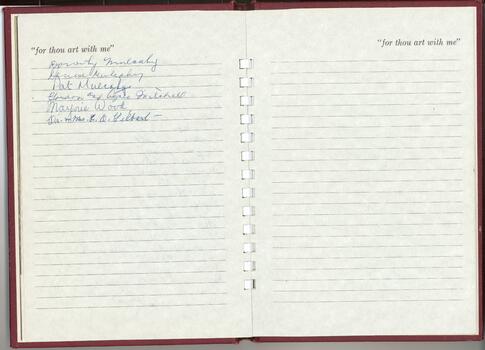 "for thou art with me"
Dorothy Mulcahy
Mulcahy
Pat Mulcahy
Gordon Mitchell
Marjorie Wood
Dr. + Mrs. E. O. Gilbert
"for thou art with me"